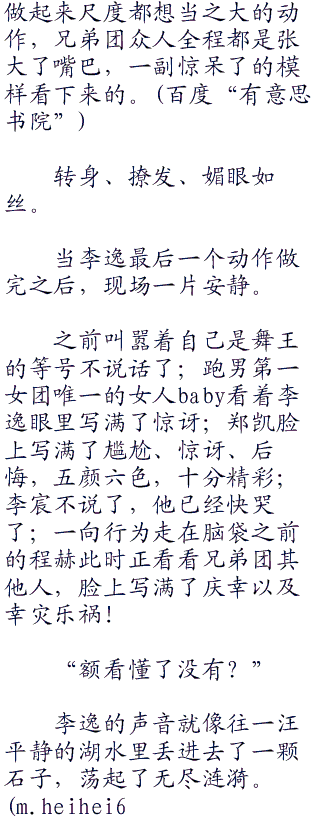 做起来尺度都想当之大的动
作，兄弟团众人全程都是张
大了嘴巴，一副惊呆了的模
样看下来的。(百度“有意思
书院”)
转身、撩发、媚眼如
丝。
当李逸最后一个动作做
完之后，现场一片安静。
之前叫嚣着自己是舞王
的等号不说话了；跑男第一
女团唯一的女人baby看着李
逸眼里写满了惊讶；郑凯脸
上写满了尴尬、惊讶、后
悔，五颜六色，十分精彩；
李宸不说了，他已经快哭
了；一向行为走在脑袋之前
的程赫此时正看看兄弟团其
他人，脸上写满了庆幸以及
幸灾乐祸！
“额看懂了没有？”
李逸的声音就像往一汪
平静的湖水里丢进去了一颗
石子，荡起了无尽涟漪。
(m.heihei6